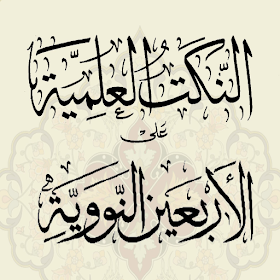 النُّكَتُ العِلْمِيَّة
عَلَى
الأَرْبَعِين النَّوَوِيَّةِ